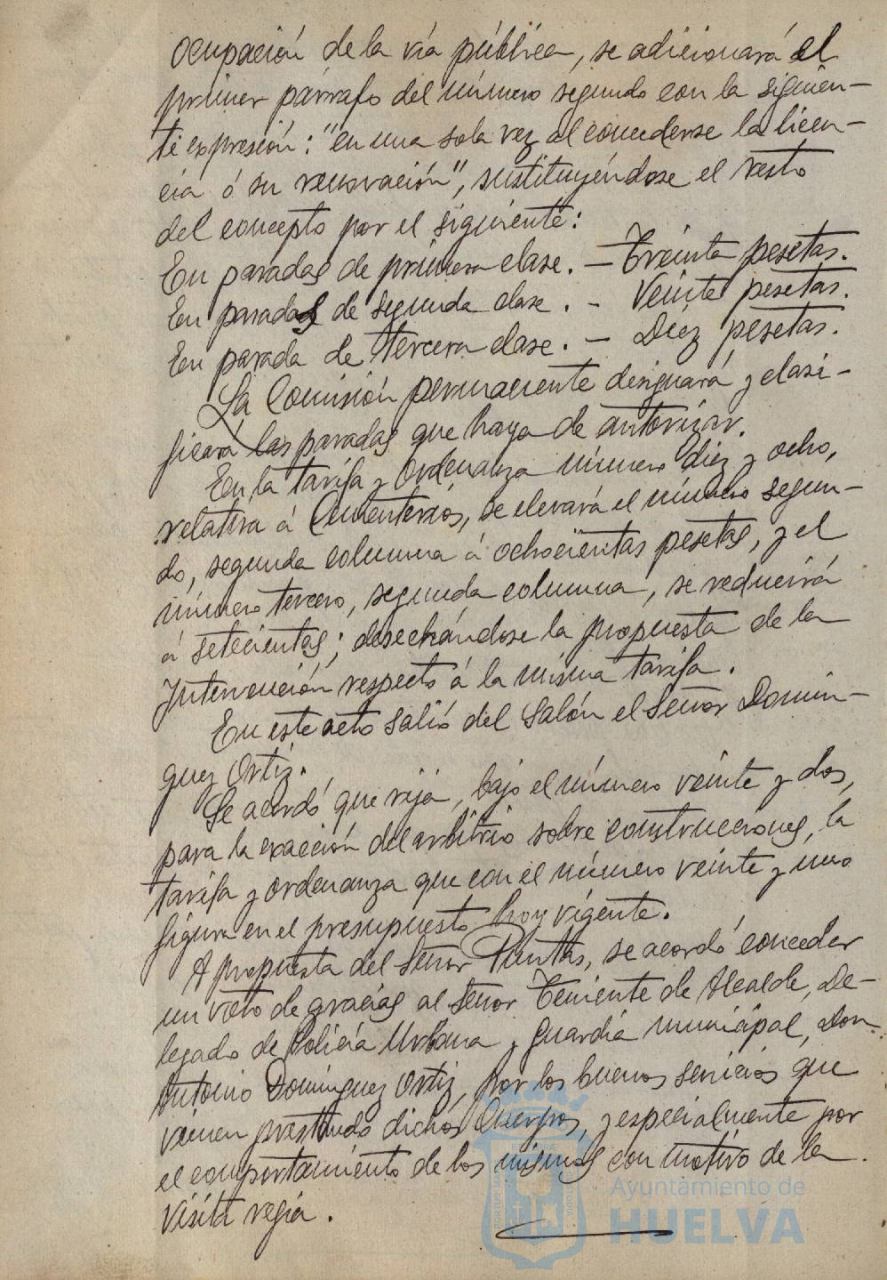 ocupación de la vía pública, se adicionará el
primer párrafo del número segundo con la siguien-
te expresión: "en una sola vez al concederse la licen-
cia ó su renovación", sustituyéndose el resto
del concepto por el siguiente:
En paradas de primera clase. - Treinta pesetas.
En paradas de segunda clase. - Veinte pesetas.
En parada de tercera clase. - Diez pesetas.
La Comisión permanente designará y clasi-
ficará las paradas que haya de autorizar.
En la tarifa y Ordenanza número diez y ocho,
relativa á Cementerios, se elevará el número segun-
do, segunda columna á ochocientas pesetas, y el
número tercero, segunda columna, se reducirá
á setecientas; desechándose la propuesta de la
Intervención respecto á la misma tarifa.
En este acto salió del Salón el Señor Domín-
guez Ortiz.
Se acordó que rija, bajo el número veinte y dos,
para la exacción del arbitrio sobre construcciones, la
tarifa y ordenanza que con el número veinte y uno
figura en el presupuesto hoy vigente.
A propuesta del Señor Puntas, se acordó conceder
un voto de gracias al Señor Teniente de Alcalde, De-
legado de Policía Urbana y guardia municipal, Don
Antonio Domínguez Ortiz, por los buenos servicios que
vienen prestando dichos Cuerpos, y especialmente por
el comportamiento de los mismos con motivo de la
visita regia.
Ayuntamiento de
HUELVA